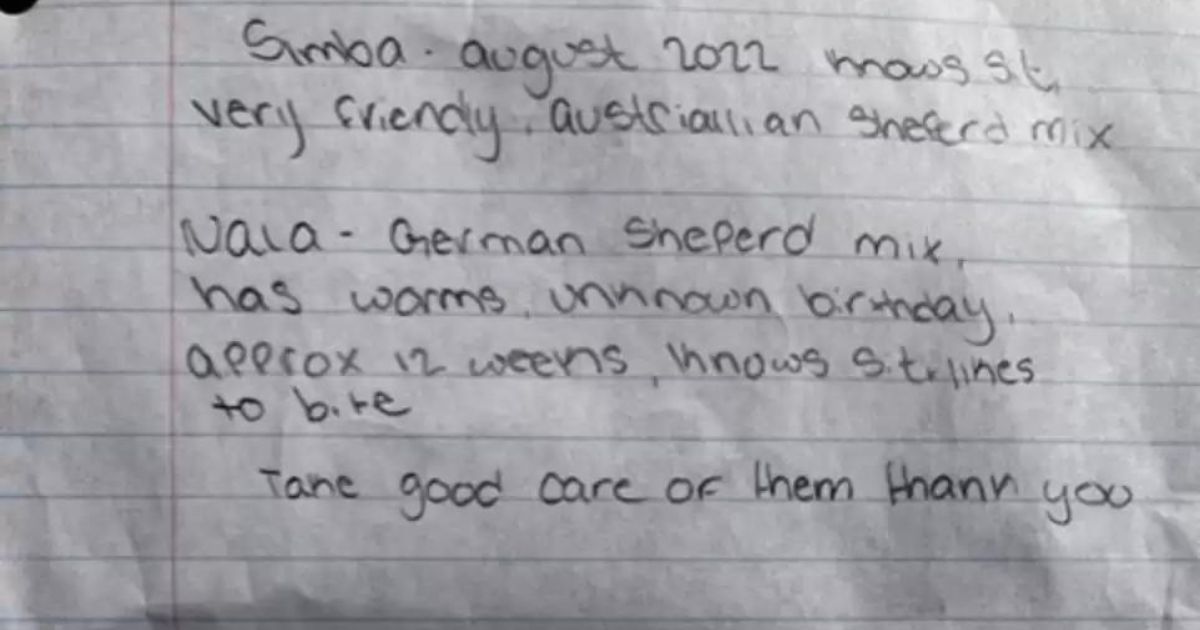 Simba - august 2022 knows sit,
very friendly. austriallian sheferd mix
Nala - German sheperd mix,
has worms, unknown birthday,
approx 12 weeks, knows sit, likes
to bite
Take good care of them thank you